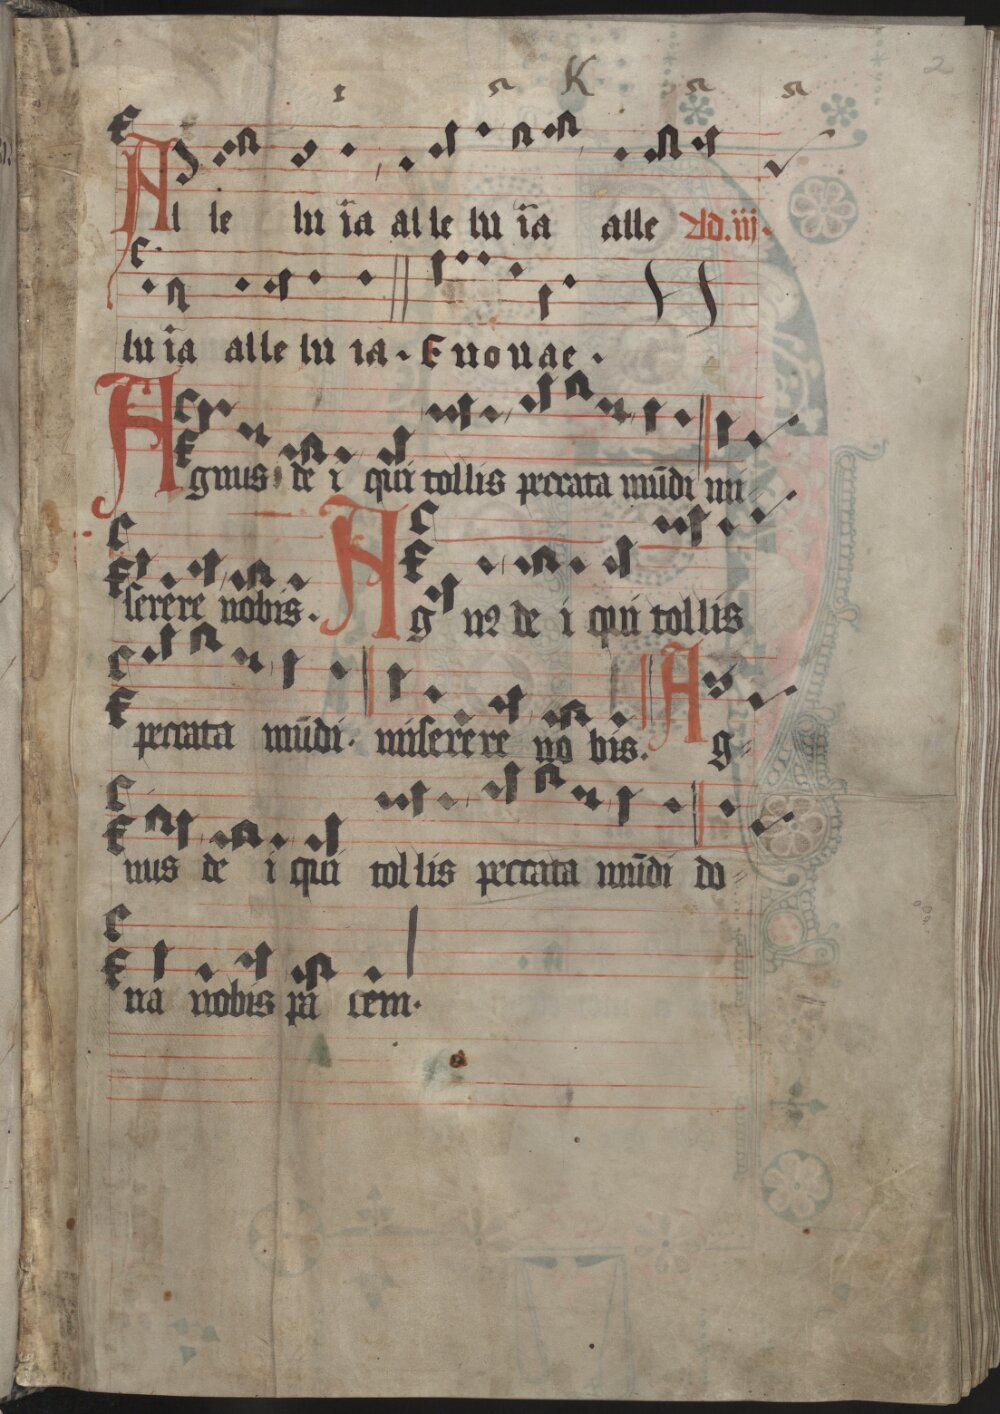 2
K
Al le lu īa al le lu īa alle Ad. iij.
lu īa alle lu ia. Euouae.
Agnus de i qui tollis peccata mūdi mi
serere nobis. Ag nꝰ de i qui tollis
peccata mūdi. miserere no bis. Ag
nus de i qui tollis peccata mūdi do
na nobis pa cem.